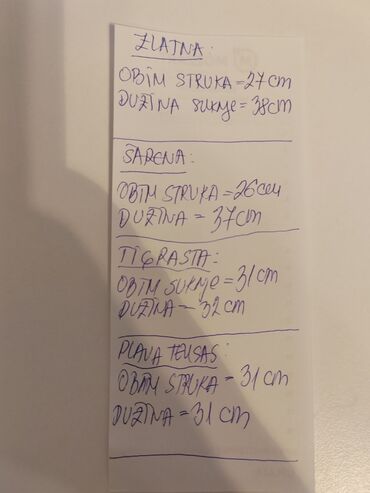 ZLATNA:
OBIM STRUKA = 27 cm
DUŽINA SUKNJE = 38 cm
ŠARENA:
OBIM STRUKA = 26 cm
DUŽINA = 37 cm
TIGRASTA:
OBIM SUKNJE = 31 cm
DUŽINA = 32 cm
PLAVA TEKSAS:
OBIM STRUKA = 31 cm
DUŽINA = 31 cm